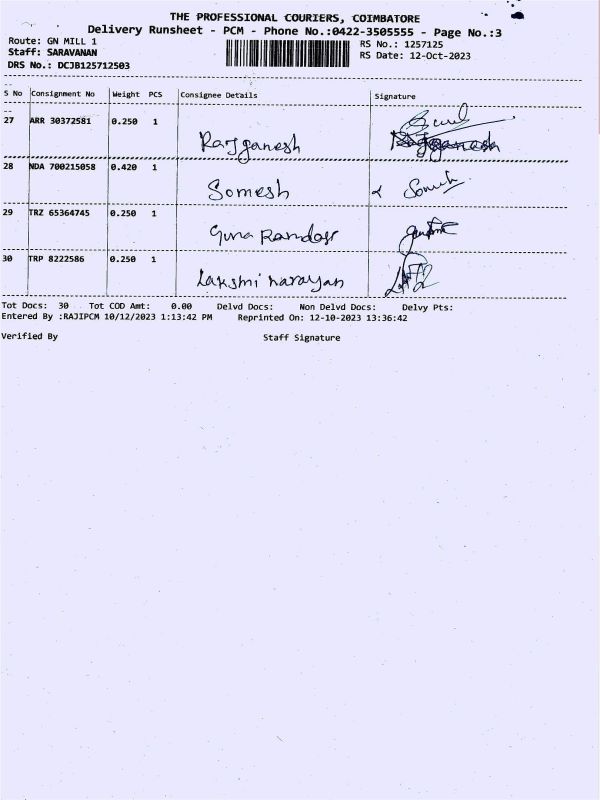 THE PROFESSIONAL COURIERS, COIMBATORE
Delivery Runsheet - PCM - Phone No.:0422-3505555 - Page No.:3
Route: GN MILL 1 RS No.: 1257125
Staff: SARAVANAN RS Date: 12-Oct-2023
DRS No.: DCJB125712503
S No Consignment No Weight PCS Consignee Details Signature
27 ARR 30372581 0.250 1 Rajganesh
28 NDA 700215058 0.420 1 Somesh
29 TRZ 65364745 0.250 1 Guna Ramdoss
30 TRP 8222586 0.250 1 Lakshmi narayan
Tot Docs: 30 Tot COD Amt: 0.00 Delvd Docs: Non Delvd Docs: Delvy Pts:
Entered By :RAJIPCM 10/12/2023 1:13:42 PM Reprinted On: 12-10-2023 13:36:42
Verified By Staff Signature